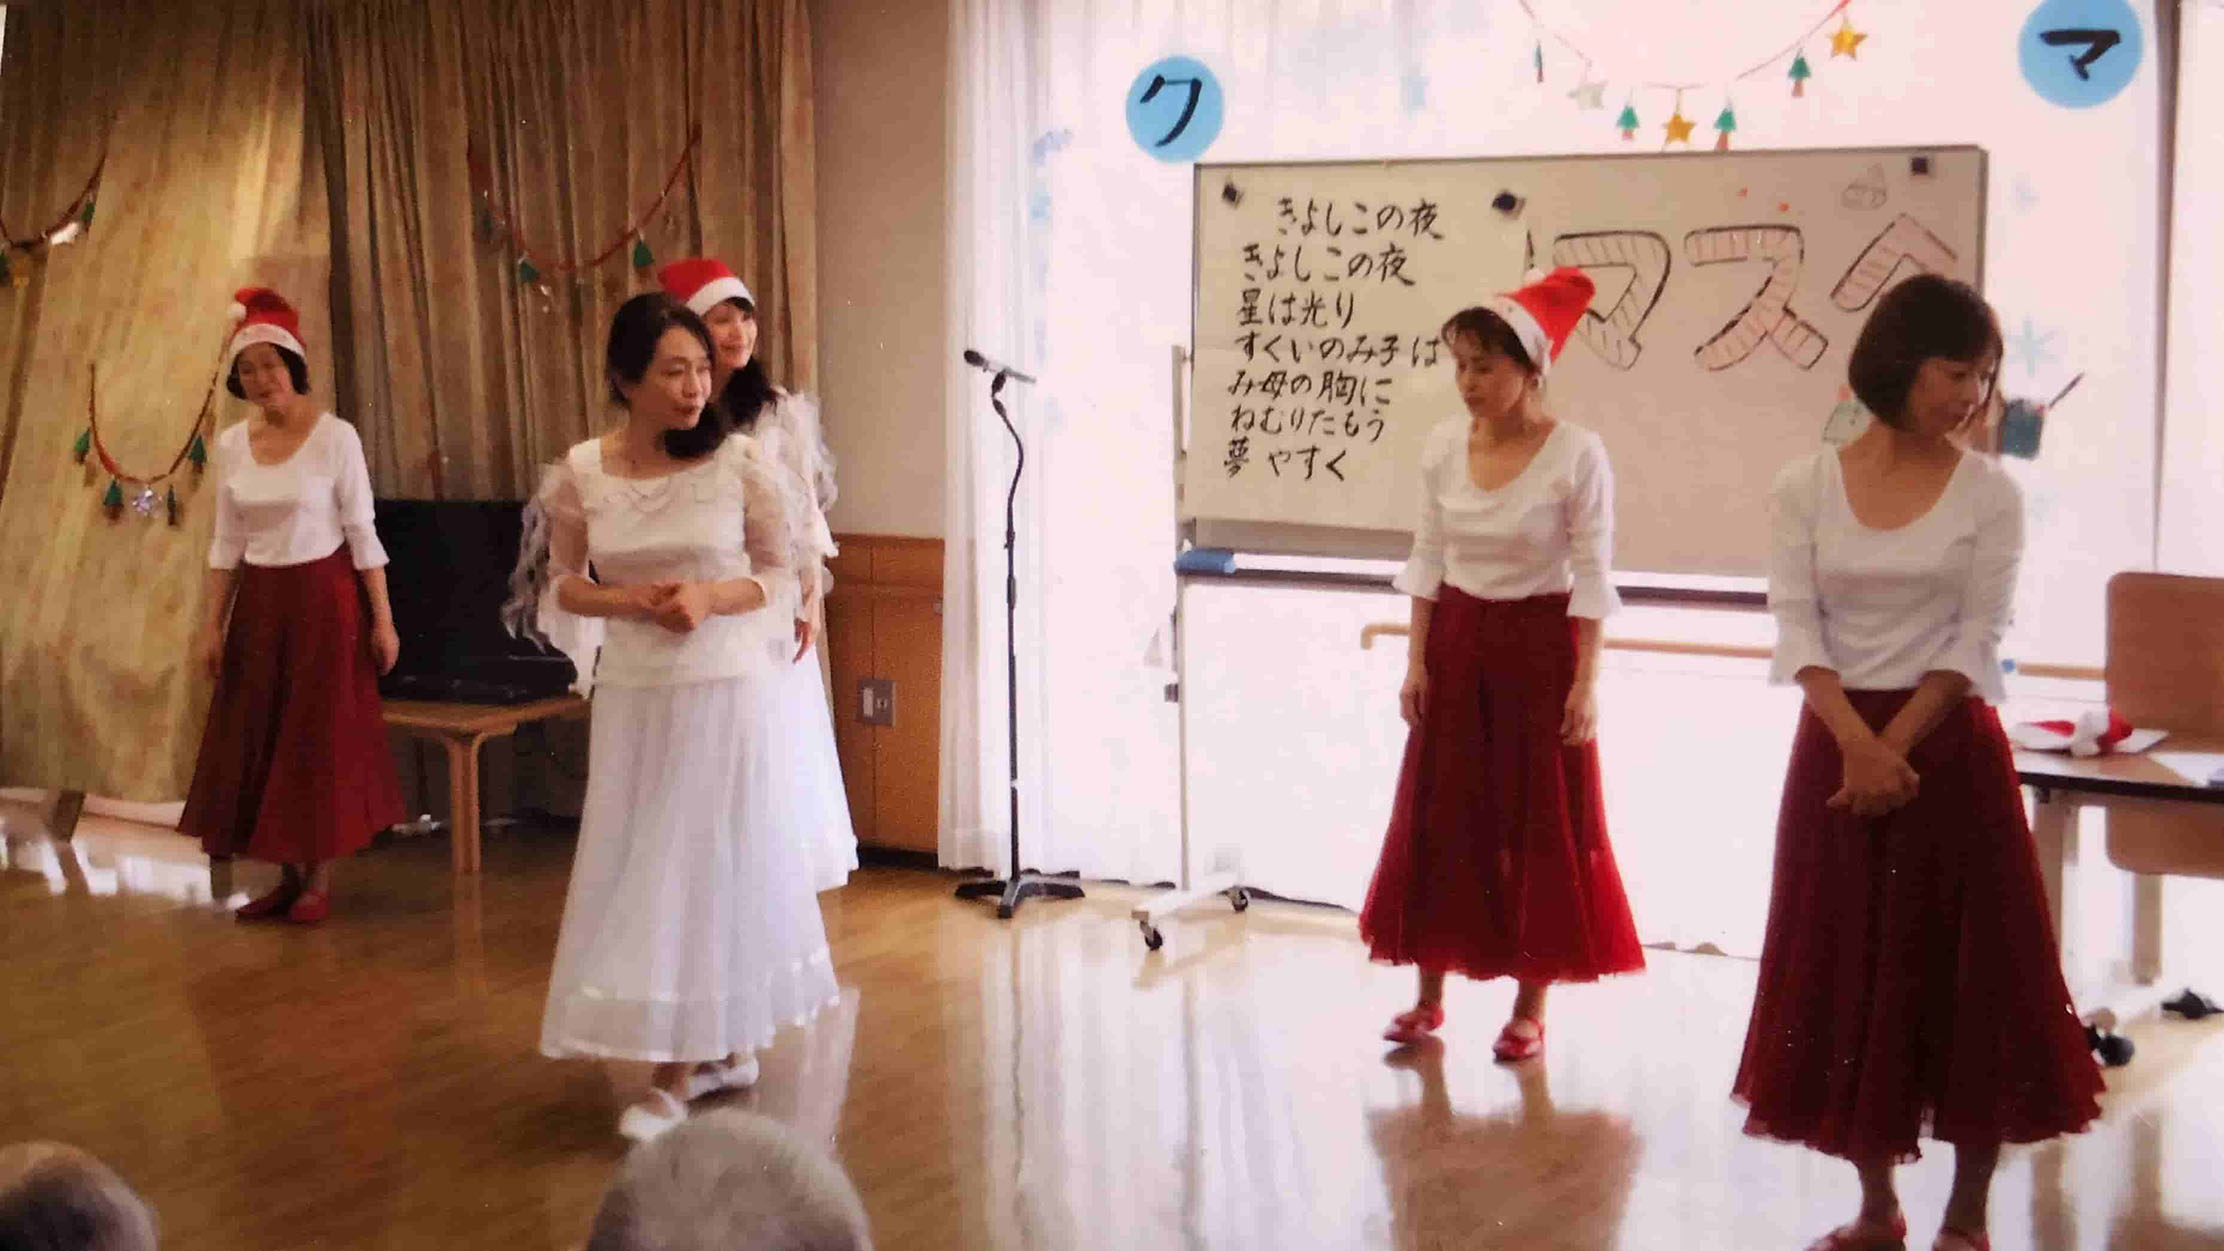 ク
マ
きよしこの夜
きよしこの夜
星は光り
すくいのみ子は
み母の胸に
ねむりたもう
夢やすく
マスへ